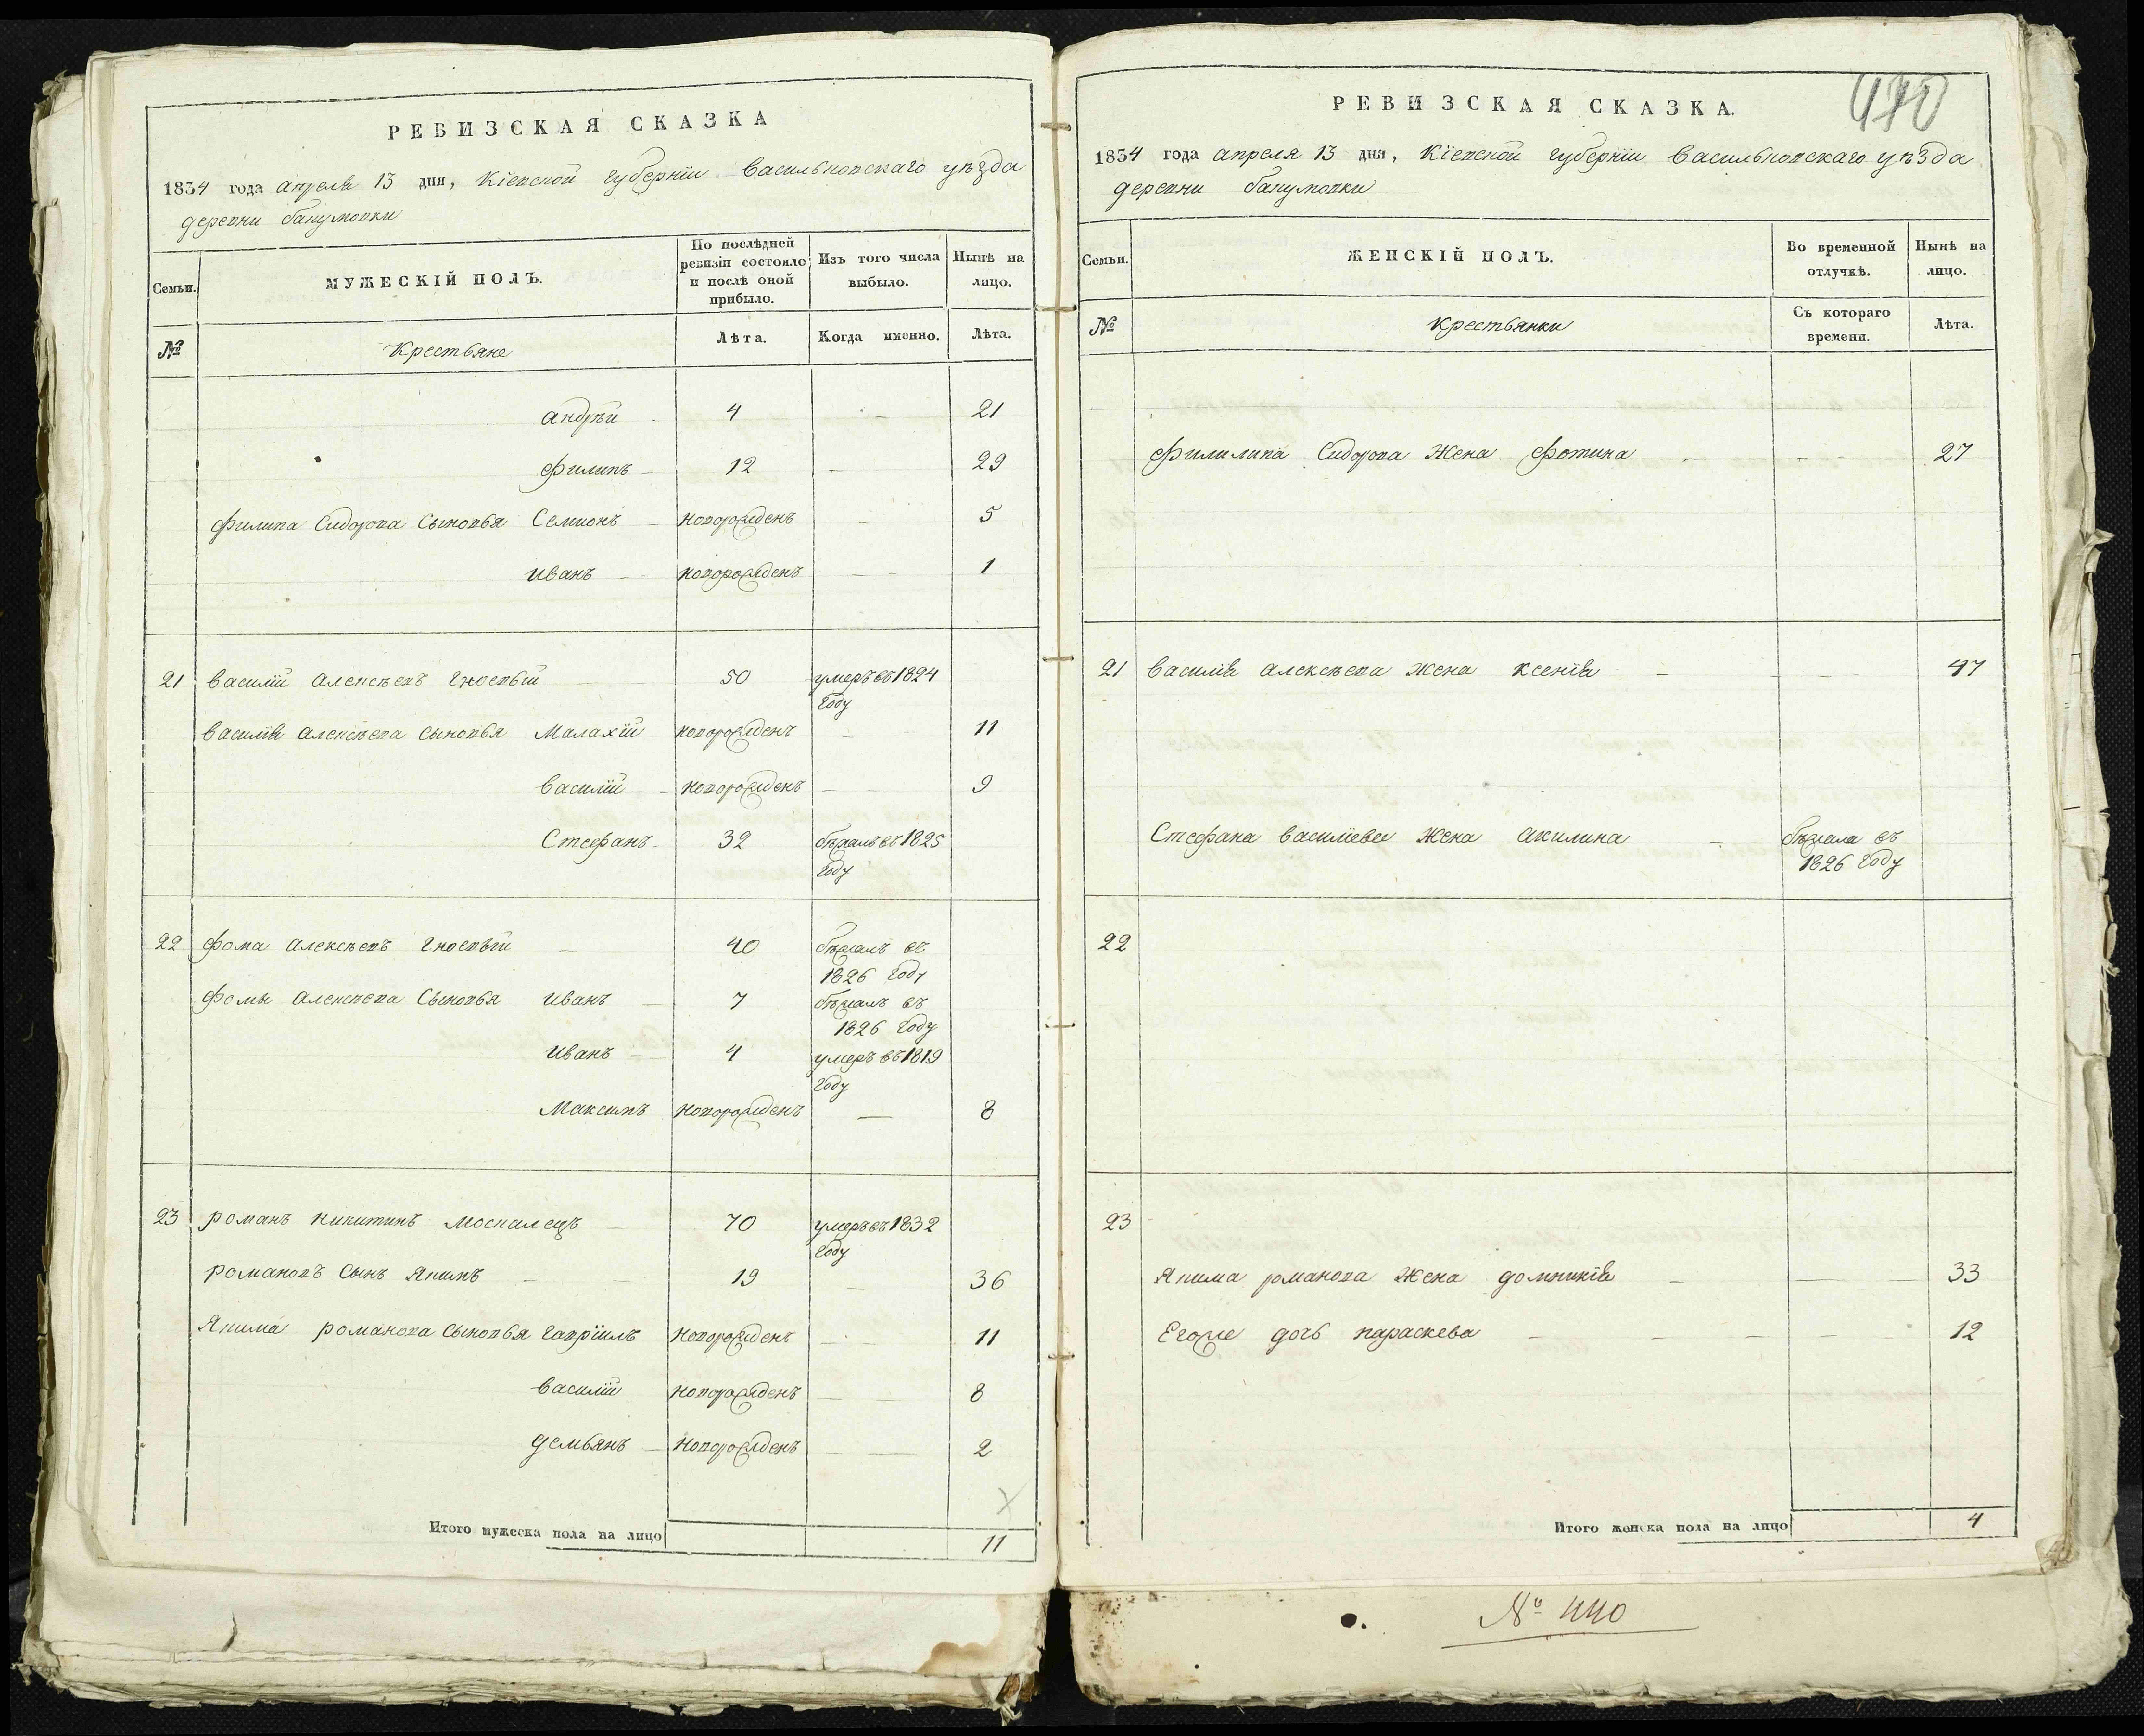 РЕВИЗСКАЯ СКАЗКА
1834 года апреля 13 дня, Кіевской губерніи Васильковскаго уѣзда
деревни
Семьи. МУЖЕСКІЙ ПОЛЪ. По послѣдней ревизіи состояло и послѣ оной прибыло. Изъ того числа выбыло. Нынѣ на лицо.
№ Крестьяне Лѣта. Когда именно. Лѣта.
андрѣй — 4 — 21
филипъ — 12 — 29
филипа Сидорова Сыновья Семионъ — новорожденъ — 5
иванъ — новорожденъ — 1
21 василій алексѣевъ гноевый — 50 умеръ въ 1824
году
василія алексѣева сыновья Малахій новорожденъ — 11
василій — новорожденъ — 9
Стефанъ — 32 бѣжалъ въ 1825
году
22 фома алексѣевъ гноевый — 40 бѣжалъ въ
1826 году
фомы алексѣева Сыновья иванъ — 7 бѣжалъ въ
1826 году
иванъ — 4 умеръ въ 1819
году
Максимъ новорожденъ — 8
23 романъ никитинъ москалецъ — 70 умеръ въ 1832
году
романовъ сынъ Якимъ — 19 — 36
Якима романова сыновья гавріилъ новорожденъ — 11
василій новорожденъ — 8
демьянъ — новорожденъ — 2
Итого мужеска пола на лицо 11
РЕВИЗСКАЯ СКАЗКА.
1834 года апреля 13 дня, Кіевской губерніи Васильковскаго уѣзда
деревни
Семьи. ЖЕНСКІЙ ПОЛЪ. Во временной отлучкѣ. Нынѣ на лицо.
№ Крестьянки Съ котораго времени. Лѣта.
филипа Сидорова Жена фотина — 27
21 василія алексѣева жена ксенія — 47
Стефана василіева жена акилина — бѣжала въ
1826 году
22
23
Якима романова жена домникія — 33
Егоже дочь параскева — 12
Итого женска пола на лицо 4
№ 440